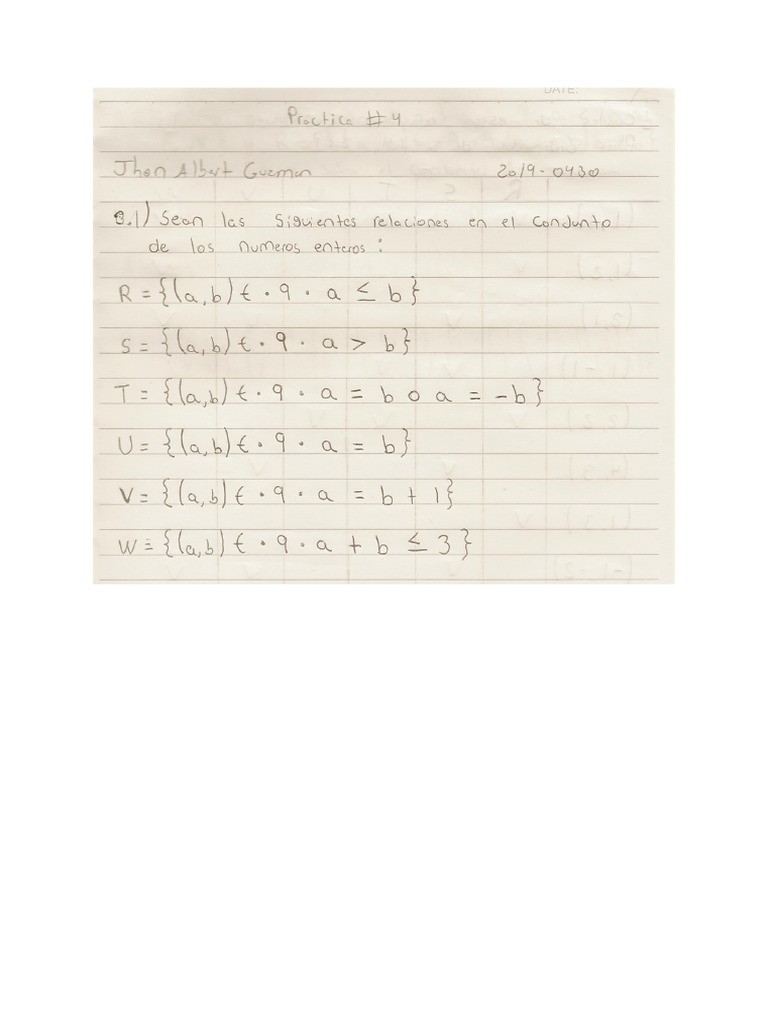 DATE:
Practica # 4
Jhon Albert Guzman 2019-0430
3.1) Sean las siguientes relaciones en el conjunto
de los numeros enteros:
R = {(a,b) t · q · a ≤ b}
S = {(a,b) t · q · a > b}
T = {(a,b) t · q · a = b o a = -b}
U = {(a,b) t · q · a = b}
V = {(a,b) t · q · a = b + 1}
W = {(a,b) t · q · a + b ≤ 3}